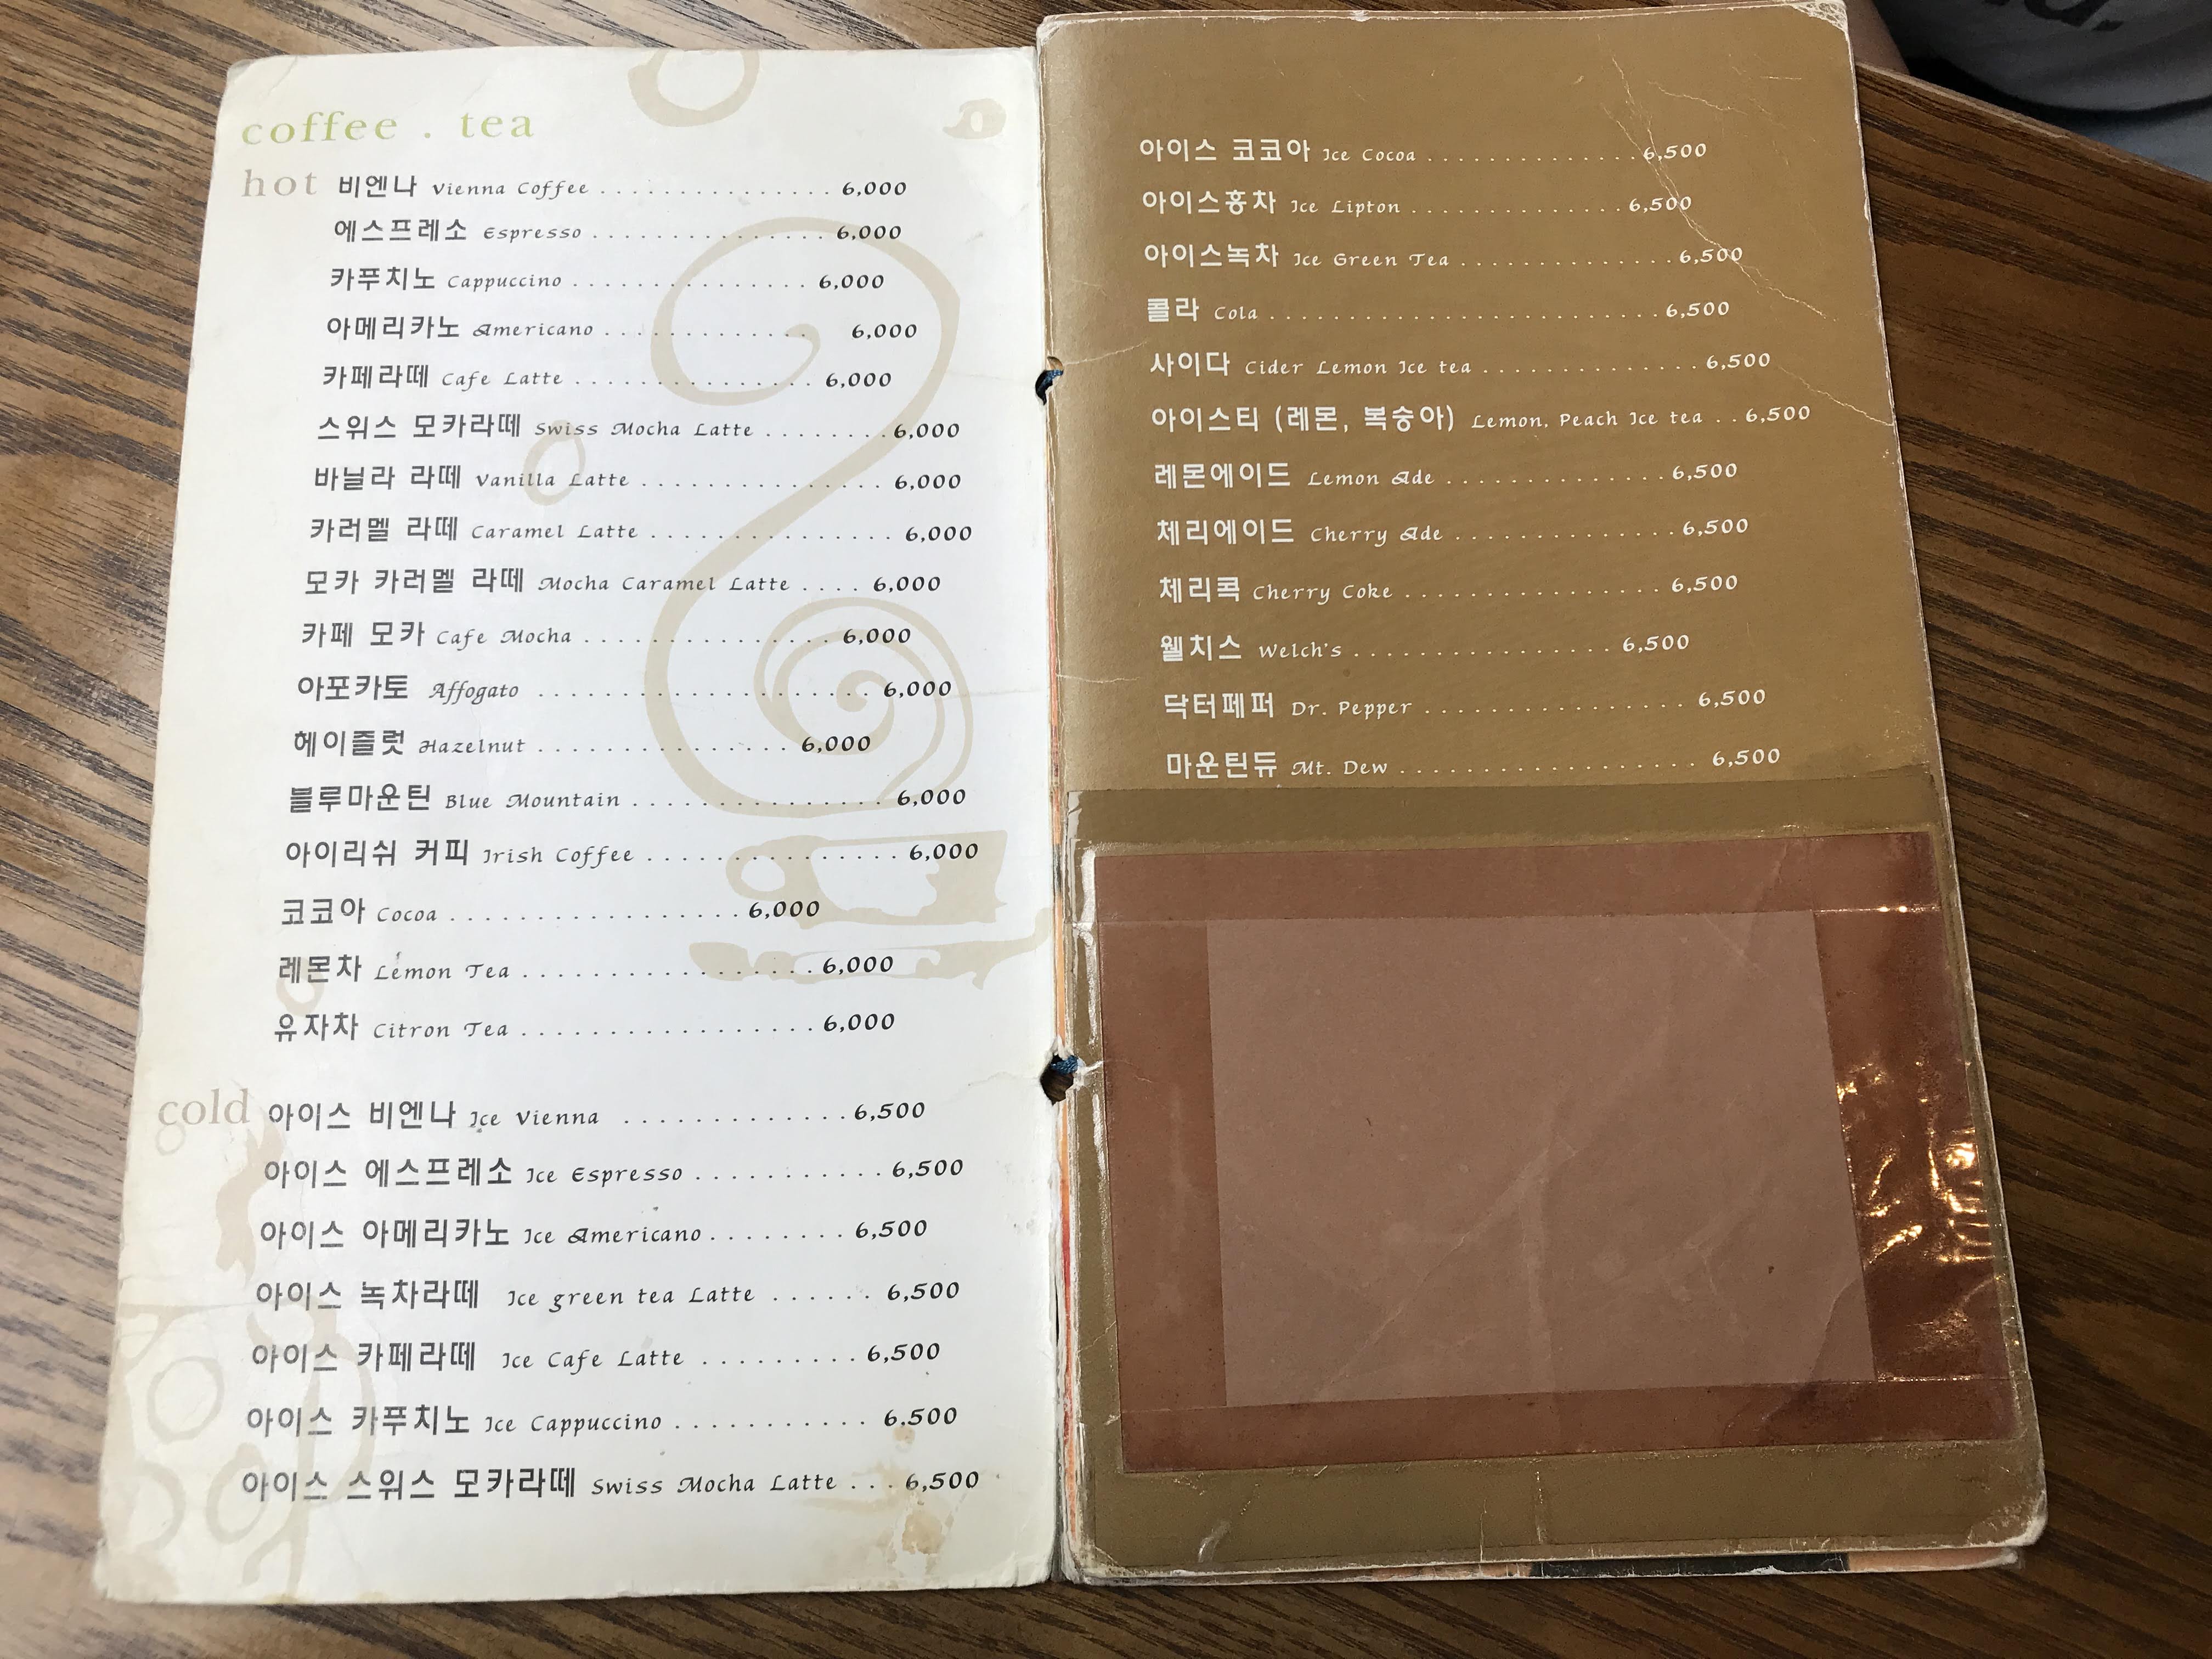 coffee . tea
hot 비엔나 Vienna Coffee . . . . . . . . . . . . . . . . . 6,000
에스프레소 Espresso . . . . . . . . . . . . . . . . . 6,000
카푸치노 Cappuccino . . . . . . . . . . . . . . . . . 6,000
아메리카노 Americano . . . . . . . . . . . . . . . 6,000
카페라떼 Cafe Latte . . . . . . . . . . . . . . . . . 6,000
스위스 모카라떼 Swiss Mocha Latte . . . . . . . . 6,000
바닐라 라떼 Vanilla Latte . . . . . . . . . . . . . . . . . 6,000
카러멜 라떼 Caramel Latte . . . . . . . . . . . . . . . . . 6,000
모카 카러멜 라떼 Mocha Caramel Latte . . . . 6,000
카페 모카 Cafe Mocha . . . . . . . . . . . . . . . . . 6,000
아포카토 Affogato . . . . . . . . . . . . . . . . . . . . 6,000
헤이즐럿 Hazelnut . . . . . . . . . . . . . . . . . 6,000
블루마운틴 Blue Mountain . . . . . . . . . . . . . . . . . 6,000
아이리쉬 커피 Irish Coffee . . . . . . . . . . . . . . . . . 6,000
코코아 Cocoa . . . . . . . . . . . . . . . . . 6,000
레몬차 Lemon Tea . . . . . . . . . . . . . . . . . 6,000
유자차 Citron Tea . . . . . . . . . . . . . . . . . 6,000
cold 아이스 비엔나 Ice Vienna . . . . . . . . . . . . . 6,500
아이스 에스프레소 Ice Espresso . . . . . . . . . . . 6,500
아이스 아메리카노 Ice Americano . . . . . . . . 6,500
아이스 녹차라떼 Ice green tea Latte . . . . . . 6,500
아이스 카페라떼 Ice Cafe Latte . . . . . . . . . 6,500
아이스 카푸치노 Ice Cappuccino . . . . . . . . . . . 6.500
아이스 스위스 모카라떼 Swiss Mocha Latte . . . 6,500
아이스 코코아 Ice Cocoa . . . . . . . . . . . . . . . 6,500
아이스홍차 Ice Lipton . . . . . . . . . . . . . . . 6,500
아이스녹차 Ice Green Tea . . . . . . . . . . . . . . . 6,500
콜라 Cola . . . . . . . . . . . . . . . . . . . . . . . . . . . . 6,500
사이다 Cider Lemon Ice tea . . . . . . . . . . . . . . . 6,500
아이스티 (레몬, 복숭아) Lemon. Peach Ice tea . . 6,500
레몬에이드 Lemon Ade . . . . . . . . . . . . . . . 6,500
체리에이드 Cherry Ade . . . . . . . . . . . . . . . 6,500
체리콕 Cherry Coke . . . . . . . . . . . . . . . . . . 6,500
웰치스 Welch's . . . . . . . . . . . . . . . . . . 6,500
닥터페퍼 Dr. Pepper . . . . . . . . . . . . . . . . . . 6,500
마운틴듀 Mt. Dew . . . . . . . . . . . . . . . . . . . . 6,500